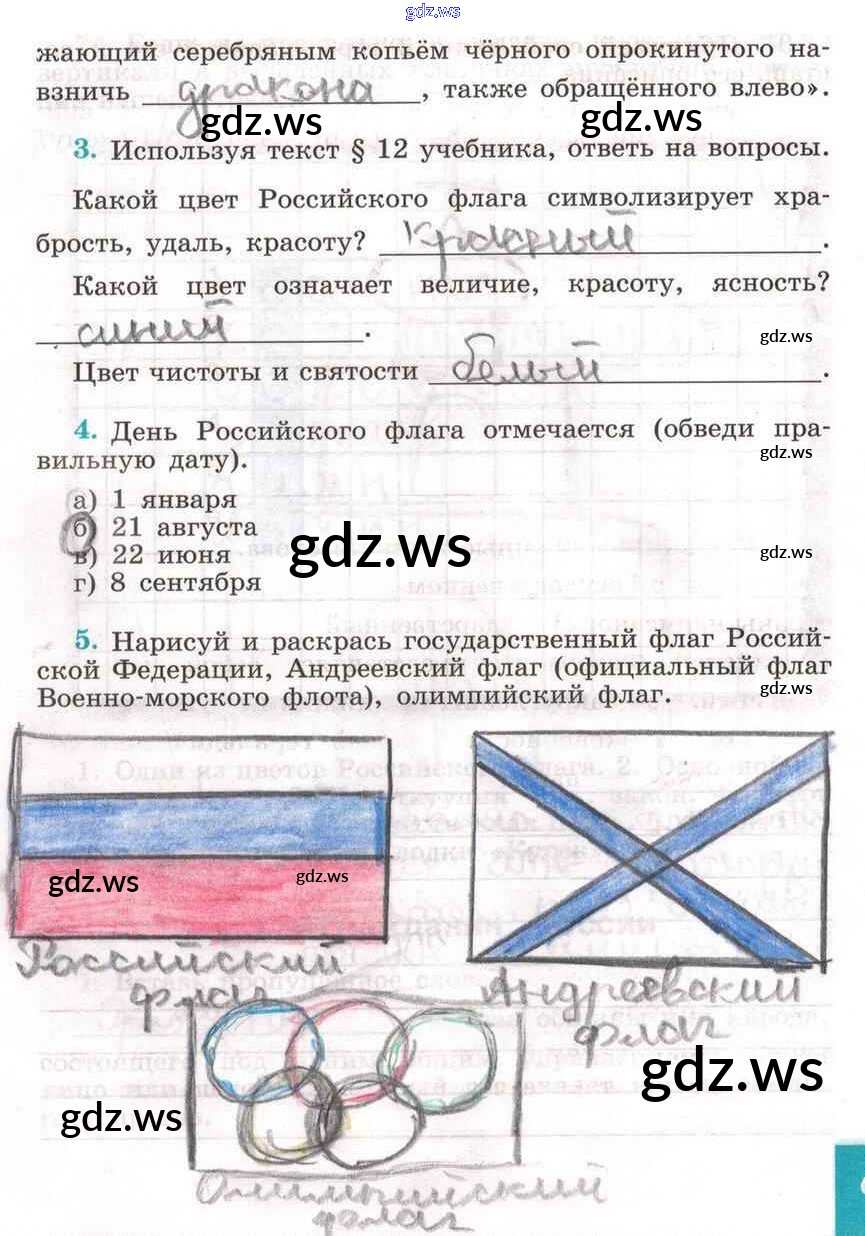 gdz.ws
жающий серебряным копьём чёрного опрокинутого на-
взничь дракона, также обращённого влево».
gdz.ws gdz.ws
3. Используя текст § 12 учебника, ответь на вопросы.
Какой цвет Российского флага символизирует хра-
брость, удаль, красоту? красный.
Какой цвет означает величие, красоту, ясность?
синий.
gdz.ws
Цвет чистоты и святости белый.
4. День Российского флага отмечается (обведи пра-
вильную дату).
gdz.ws
а) 1 января
б) 21 августа
в) 22 июня
г) 8 сентября
gdz.ws gdz.ws
5. Нарисуй и раскрась государственный флаг Россий-
ской Федерации, Андреевский флаг (официальный флаг
Военно-морского флота), олимпийский флаг.
gdz.ws
gdz.ws gdz.ws
Российский
флаг
Андреевский
флаг
gdz.ws
gdz.ws
Олимпийский
флаг